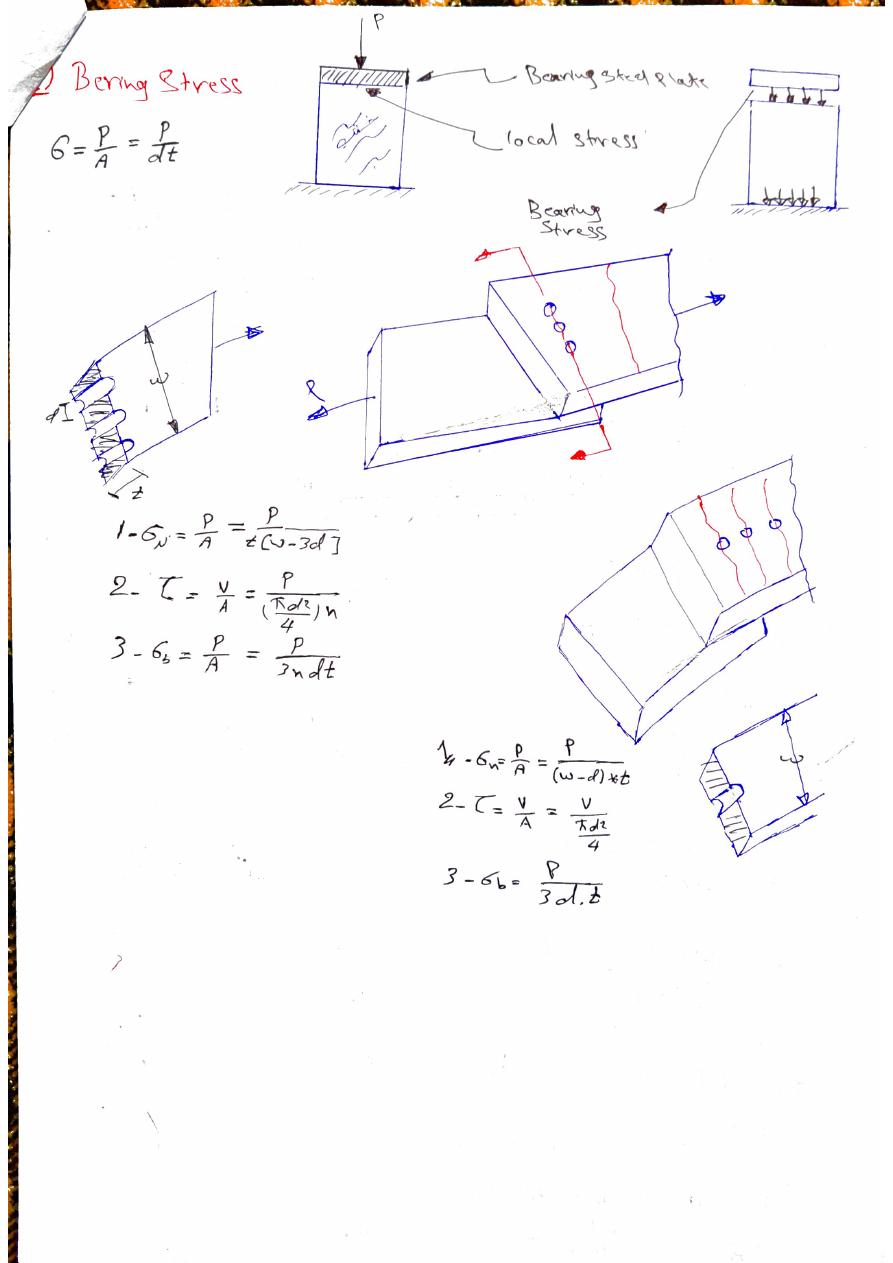 Bering Stress
P
Bearing Steel Plate
σ = P/A = P/dt
local stress
Bearing
Stress
w
P
d
t
1 - σN = P/A = P/t[w-3d]
2 - τ = V/A = P/(πd²/4)n
3 - σb = P/A = P/3ndt
w
- σn = P/A = P/(w-d)*t
2 - τ = V/A = V/πd²/4
3 - σb = P/3d.t